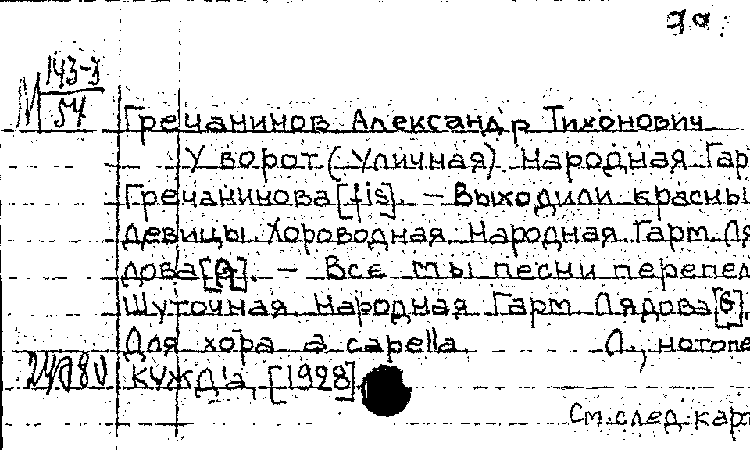 М 143-3
54
Гречанинов Александр Тихонович
У ворот (Уличная) Народная Гар
Гречанинова [fis]. – Выходили красны
девицы. Хороводная. Народная. Гарм. Ля
дова [G]. – Все мы песни перепел
Шуточная. Народная. Гарм. Лядова [G].
Для хора a capella. Л., нотопе
КУЖД'а, [1928]
См. след. карт